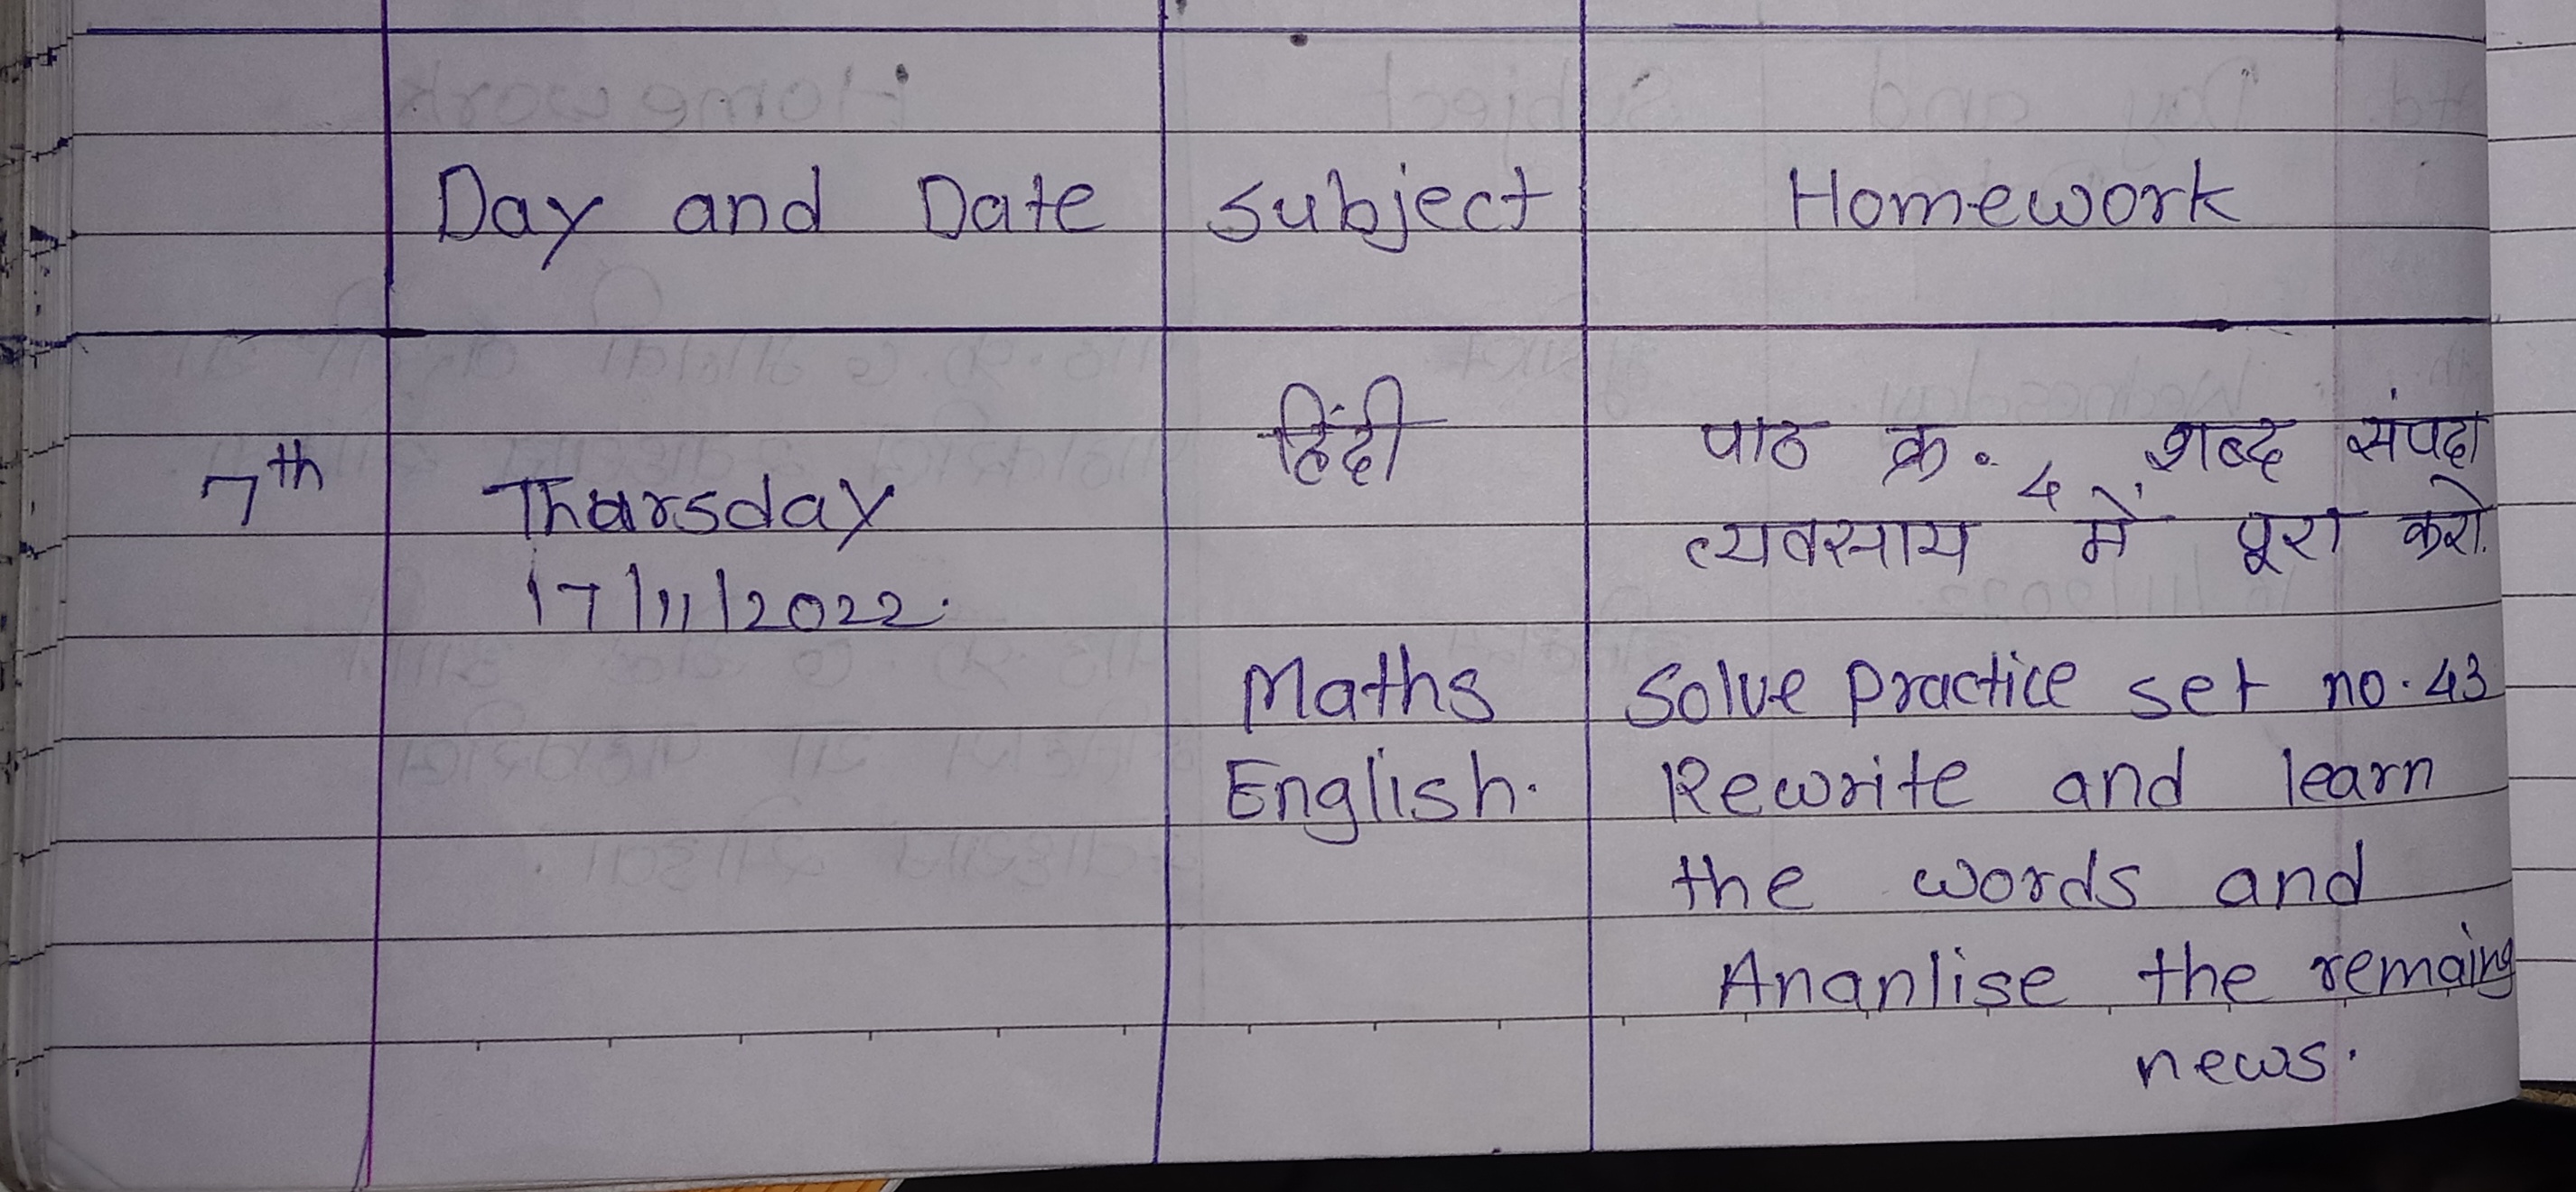 Day and Date Subject Homework
7th Thursday हिंदी पाठ क्र. 4 शब्द संपदा
17/11/2022. व्यवसाय में पूरा करो.
Maths Solve practice set no. 43
English. Rewrite and learn
the words and
Ananlise the remaing
news.